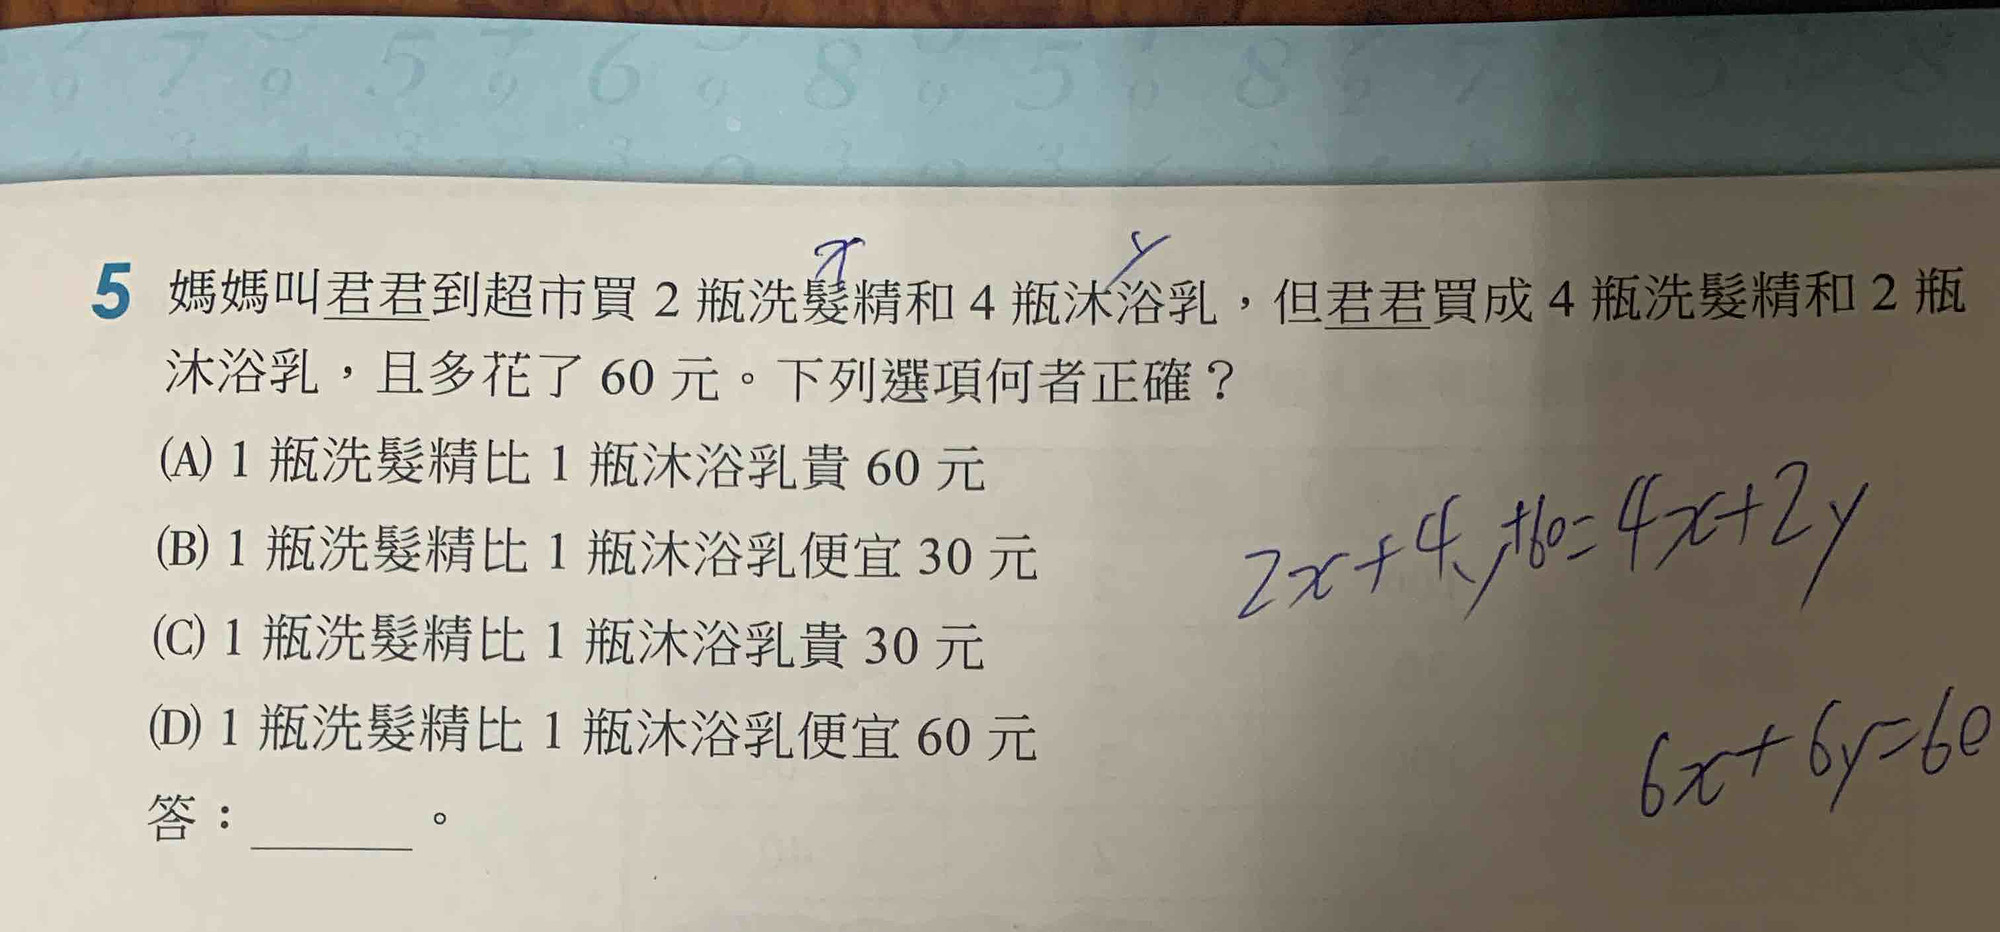 x y
5 媽媽叫君君到超市買 2 瓶洗髮精和 4 瓶沐浴乳，但君君買成 4 瓶洗髮精和 2 瓶
沐浴乳，且多花了 60 元。下列選項何者正確？
(A) 1 瓶洗髮精比 1 瓶沐浴乳貴 60 元
(B) 1 瓶洗髮精比 1 瓶沐浴乳便宜 30 元
2x+4y+60=4x+2y
(C) 1 瓶洗髮精比 1 瓶沐浴乳貴 30 元
(D) 1 瓶洗髮精比 1 瓶沐浴乳便宜 60 元
6x+6y=60
答：______。